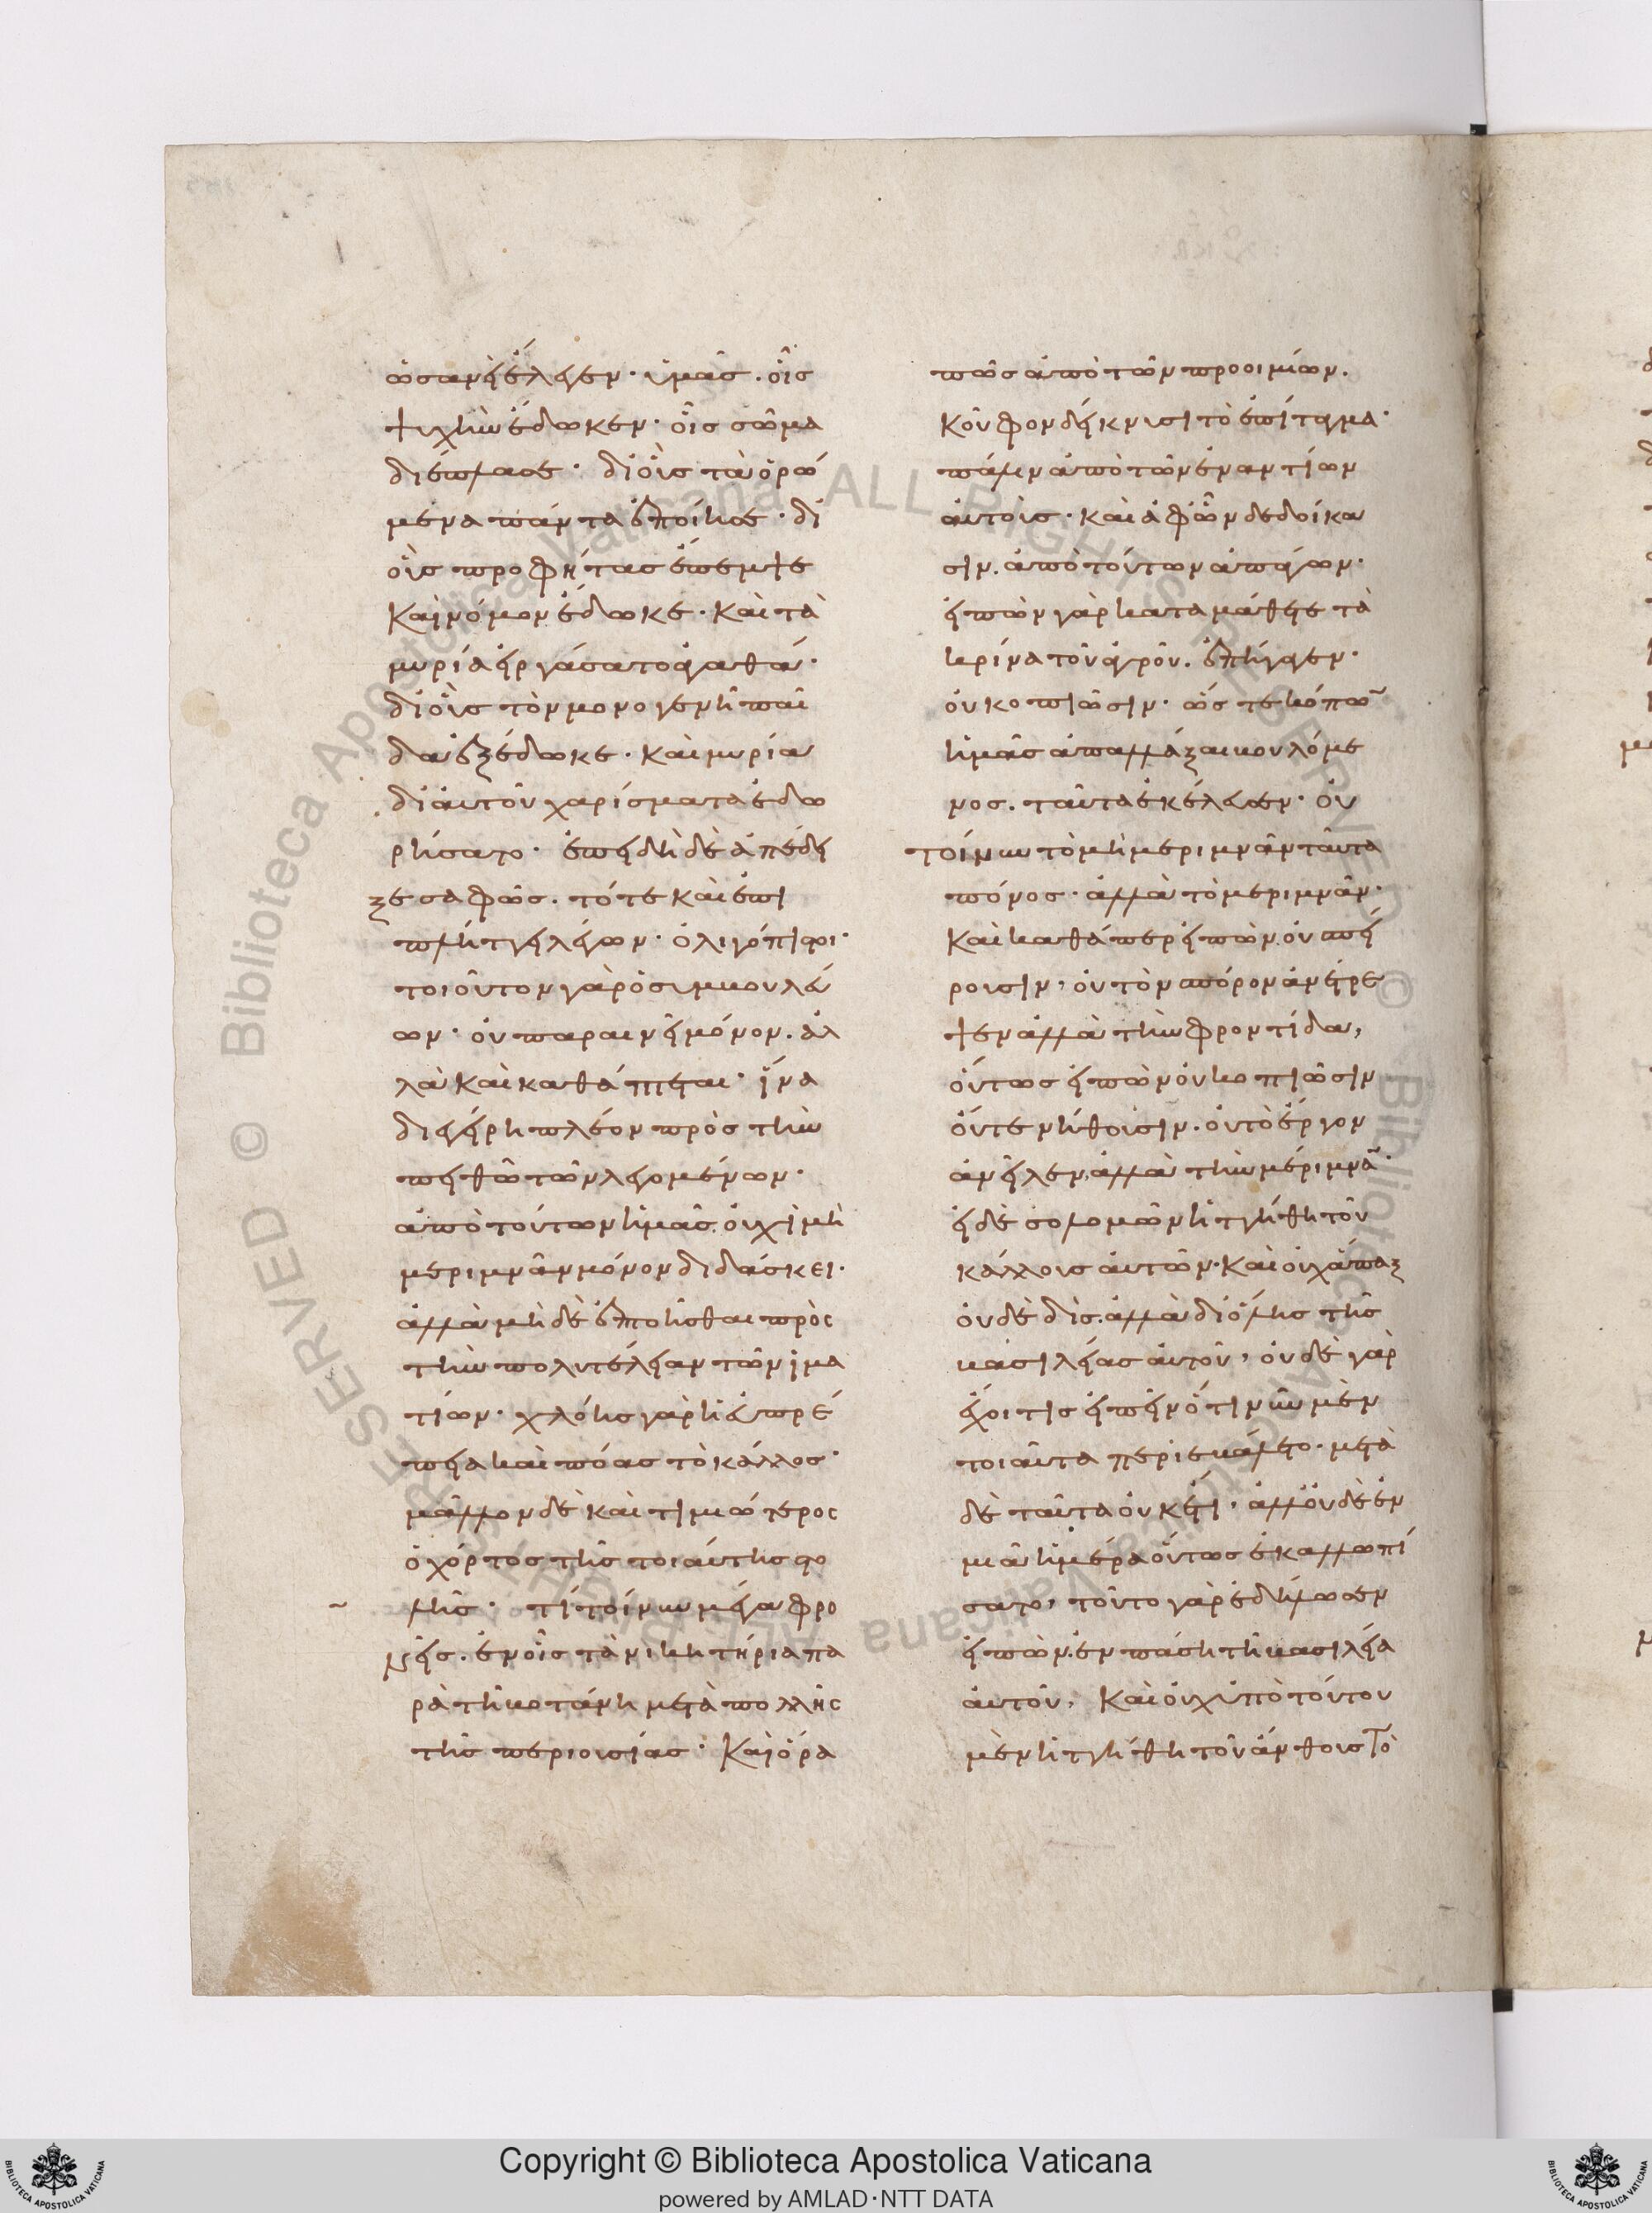 ὡσανεὶ ἔλεγεν· ὑμᾶς. οἷς
ψυχὴν ἔδωκεν· οἷς σῶμα
διέπλασε· δι' οὓς τὰ ὁρώ
μενα πάντα ἐποίησε· δι'
οὓς προφήτας ἔπεμψε
καὶ νόμον ἔδωκε· καὶ τὰ
μυρία εἰργάσατο ἀγαθά·
δι' οὓς τὸν μονογενῆ παῖ
δα ἐξέδωκε· καὶ μυρία
δι' αὐτοῦ χαρίσματα ἐδω
ρήσατο· ἐπειδὴ δὲ ἀπέδει
ξε σαφῶς. τότε καὶ ἐπι
πλήττει λέγων· ὀλιγόπιστοι·
τοιοῦτον γὰρ ὁ συμβουλεύ
ων· οὐ παραινεῖ μόνον. ἀλ
λὰ καὶ καθάπτεται· ἵνα
διεγείρη πλέον πρὸς τὴν
πειθὼ τῶν λεγομένων·
ἀπὸ τούτων ἡμᾶς. οὐχὶ μὴ
μεριμνᾶν μόνον διδάσκει·
ἀλλὰ μὴ δὲ ἐπτοῆσθαι πρὸς
τὴν πολυτέλειαν τῶν ἱμα
τίων· χλόης γὰρ ἡ εὐπρέ
πεια καὶ πόας τὸ κάλλος·
μᾶλλον δὲ καὶ τιμιώτερος
ὁ χόρτος τῆς τοιαύτης στο
λῆς· τί τοίνυν μέγα φρο
νεῖς. ἐν οἷς τὰ νικητήρια πα
ρὰ τῇ βοτάνη μετὰ πολλῆς
τῆς περιουσίας· καὶ ὅρα
πῶς ἀπὸ τῶν προοιμίων.
κοῦφον δείκνυσι τὸ ἐπίταγμα·
πάλιν ἀπὸ τῶν ἐναντίων
αὐτοὺς· καὶ ἀφ' ὧν δεδοίκα
σιν. ἀπὸ τούτων ἀπάγων·
εἰπὼν γὰρ καταμάθετε τὰ
κρίνα τοῦ ἀγροῦ. ἐπήγαγεν·
οὐ κοπιῶσιν· ὥστε κόπων
ἡμᾶς ἀπαλλάξαι βουλόμε
νος. ταῦτα ἐκέλευσεν· οὐ
τοίνυν τὸ μὴ μεριμνᾶν ταῦτα
πόνος· ἀλλὰ τὸ μεριμνᾶν·
καὶ καθάπερ εἰπὼν. οὐ σπεί
ρουσιν, οὐ τὸν σπόρον ἀνέτρε
ψεν ἀλλὰ τὴν φροντίδα,
οὕτως εἰπὼν οὐ κοπιῶσιν
οὔτε νήθουσιν. οὐ τὸ ἔργον
ἀνεῖλεν, ἀλλὰ τὴν μέριμναν·
εἰ δὲ σολομῶν ἡττήθη τοῦ
κάλλους αὐτῶν· καὶ οὐχ ἅπαξ
οὐδὲ δὶς. ἀλλὰ δι' ὅλης τῆς
βασιλείας αὐτοῦ, οὐδὲ γὰρ
ἔχοι τις εἰπεῖν ὅτι νῦν μὲν
τοιαῦτα περιεβάλετο· μετὰ
δὲ ταῦτα οὐκέτι, ἀλλ' οὐδὲ ἐν
μιᾷ ἡμέρα οὕτως ἐκαλλωπί
σατο, τοῦτο γὰρ ἐδήλωσεν
εἰπὼν. ἐν πάση τῇ βασιλεία
αὐτοῦ, καὶ οὐχ ὑπὸ τούτου
μὲν ἡττήθη τοῦ ἄνθους τὸ